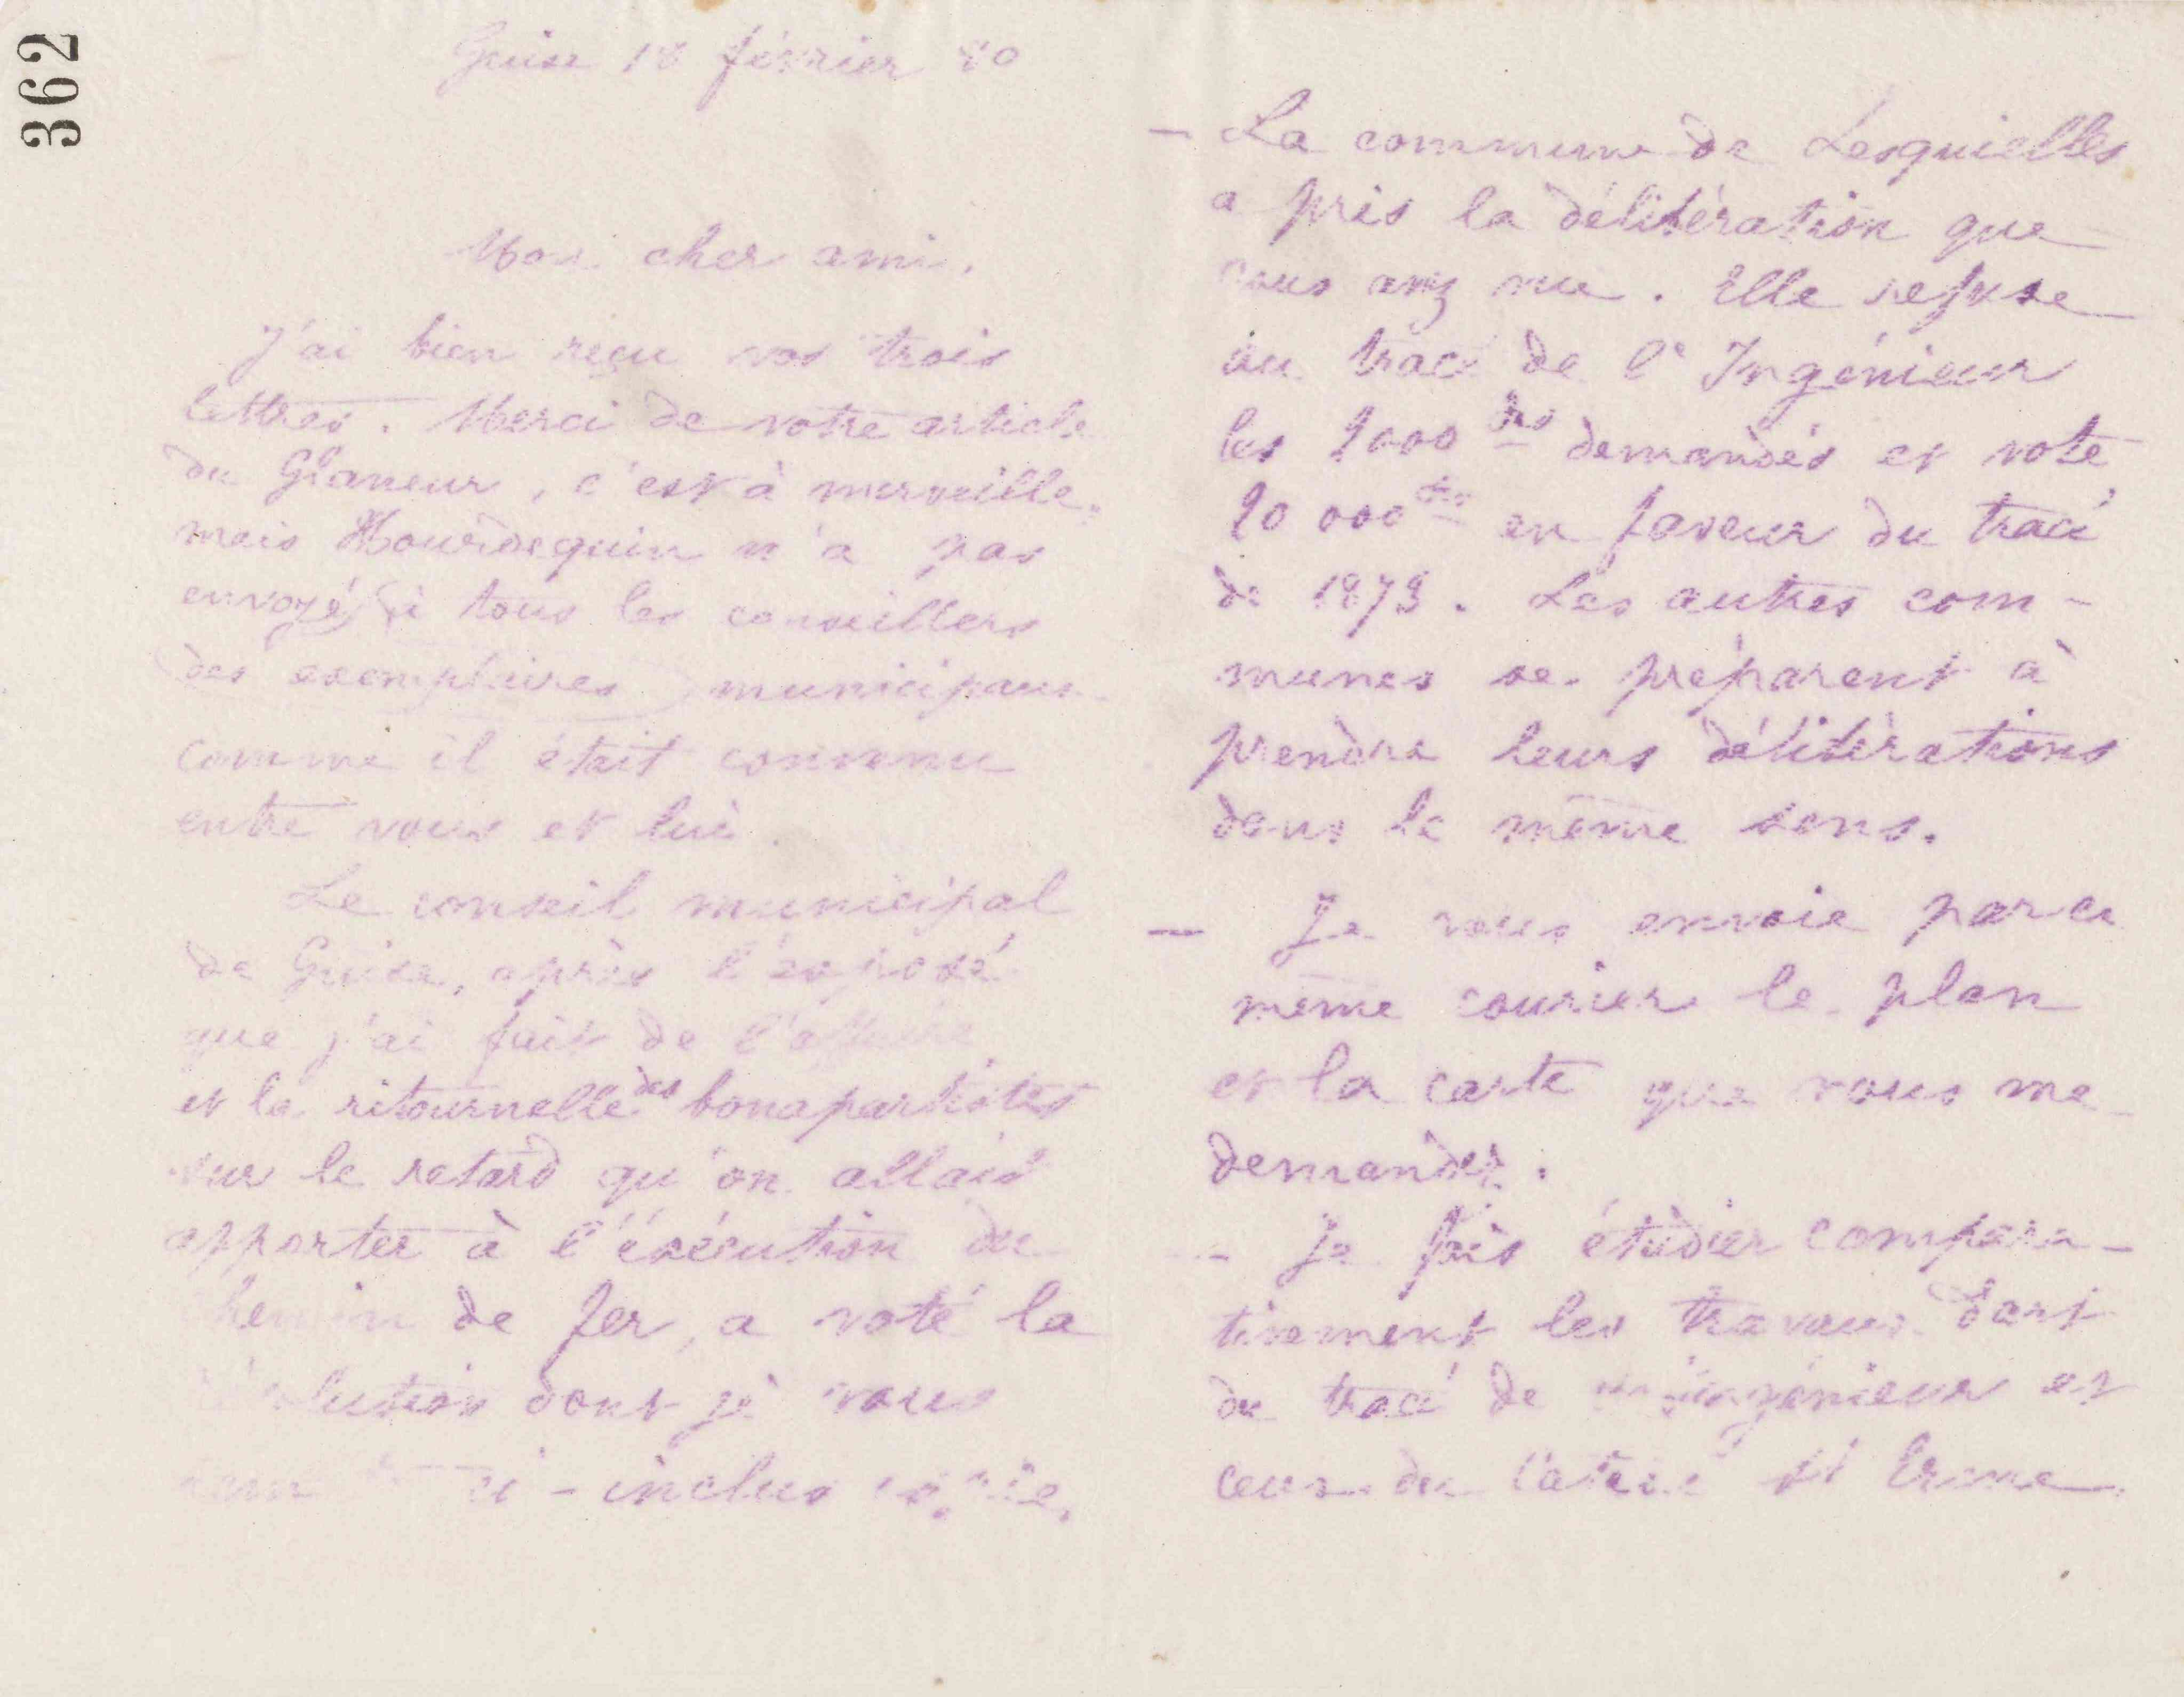 362
Guise 18 février 80
Mon cher ami,
J'ai bien reçu vos trois
lettres. Merci de votre article
du Glaneur, c'est à merveille,
mais Hourdequin n'a pas
envoyé à tous les conseillers
des exemplaires municipaux
comme il était convenu
entre vous et lui.
Le conseil municipal
de Guise, après l'exposé
que j'ai fait de l'affaire
et la ritournelle des bonapartistes
sur le retard qu'on allait
apporter à l'éxécution du
chemin de fer, a voté la
dont je vous
ci-inclus copie.
– La commune de Lesquielles
a pris la délibération que
vous avez vue. Elle refuse
au tracé de l'Ingénieur
les 2000 frs demandés et vote
20 000 frs en faveur du tracé
de 1873. Les autres com-
munes se préparent à
prendre leurs délibérations
dans le même sens.
– Je vous envoie par ce
même courrier le plan
et la carte que vous me
demandez.
– Je fais étudier compara-
tivement les travaux dart
du tracé de ingénieur et
ceux du